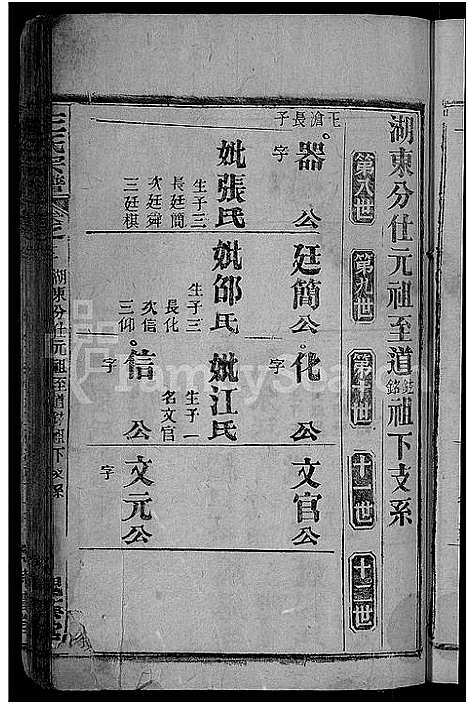 湖東分仕元祖至道鉉銘祖下支系
第八世 第九世 第十世 十一世 十二世
長子
器公
字
妣張氏
生子三
長廷簡
次廷舜
三廷棋
廷簡公
字
妣邵氏
生子三
長化
次信
三仰
化公
字
妣江氏
生子一
名文官
文官公
信公
字
文元公
字
湖東分仕元祖至道鉉銘祖下支系
FamilySearch